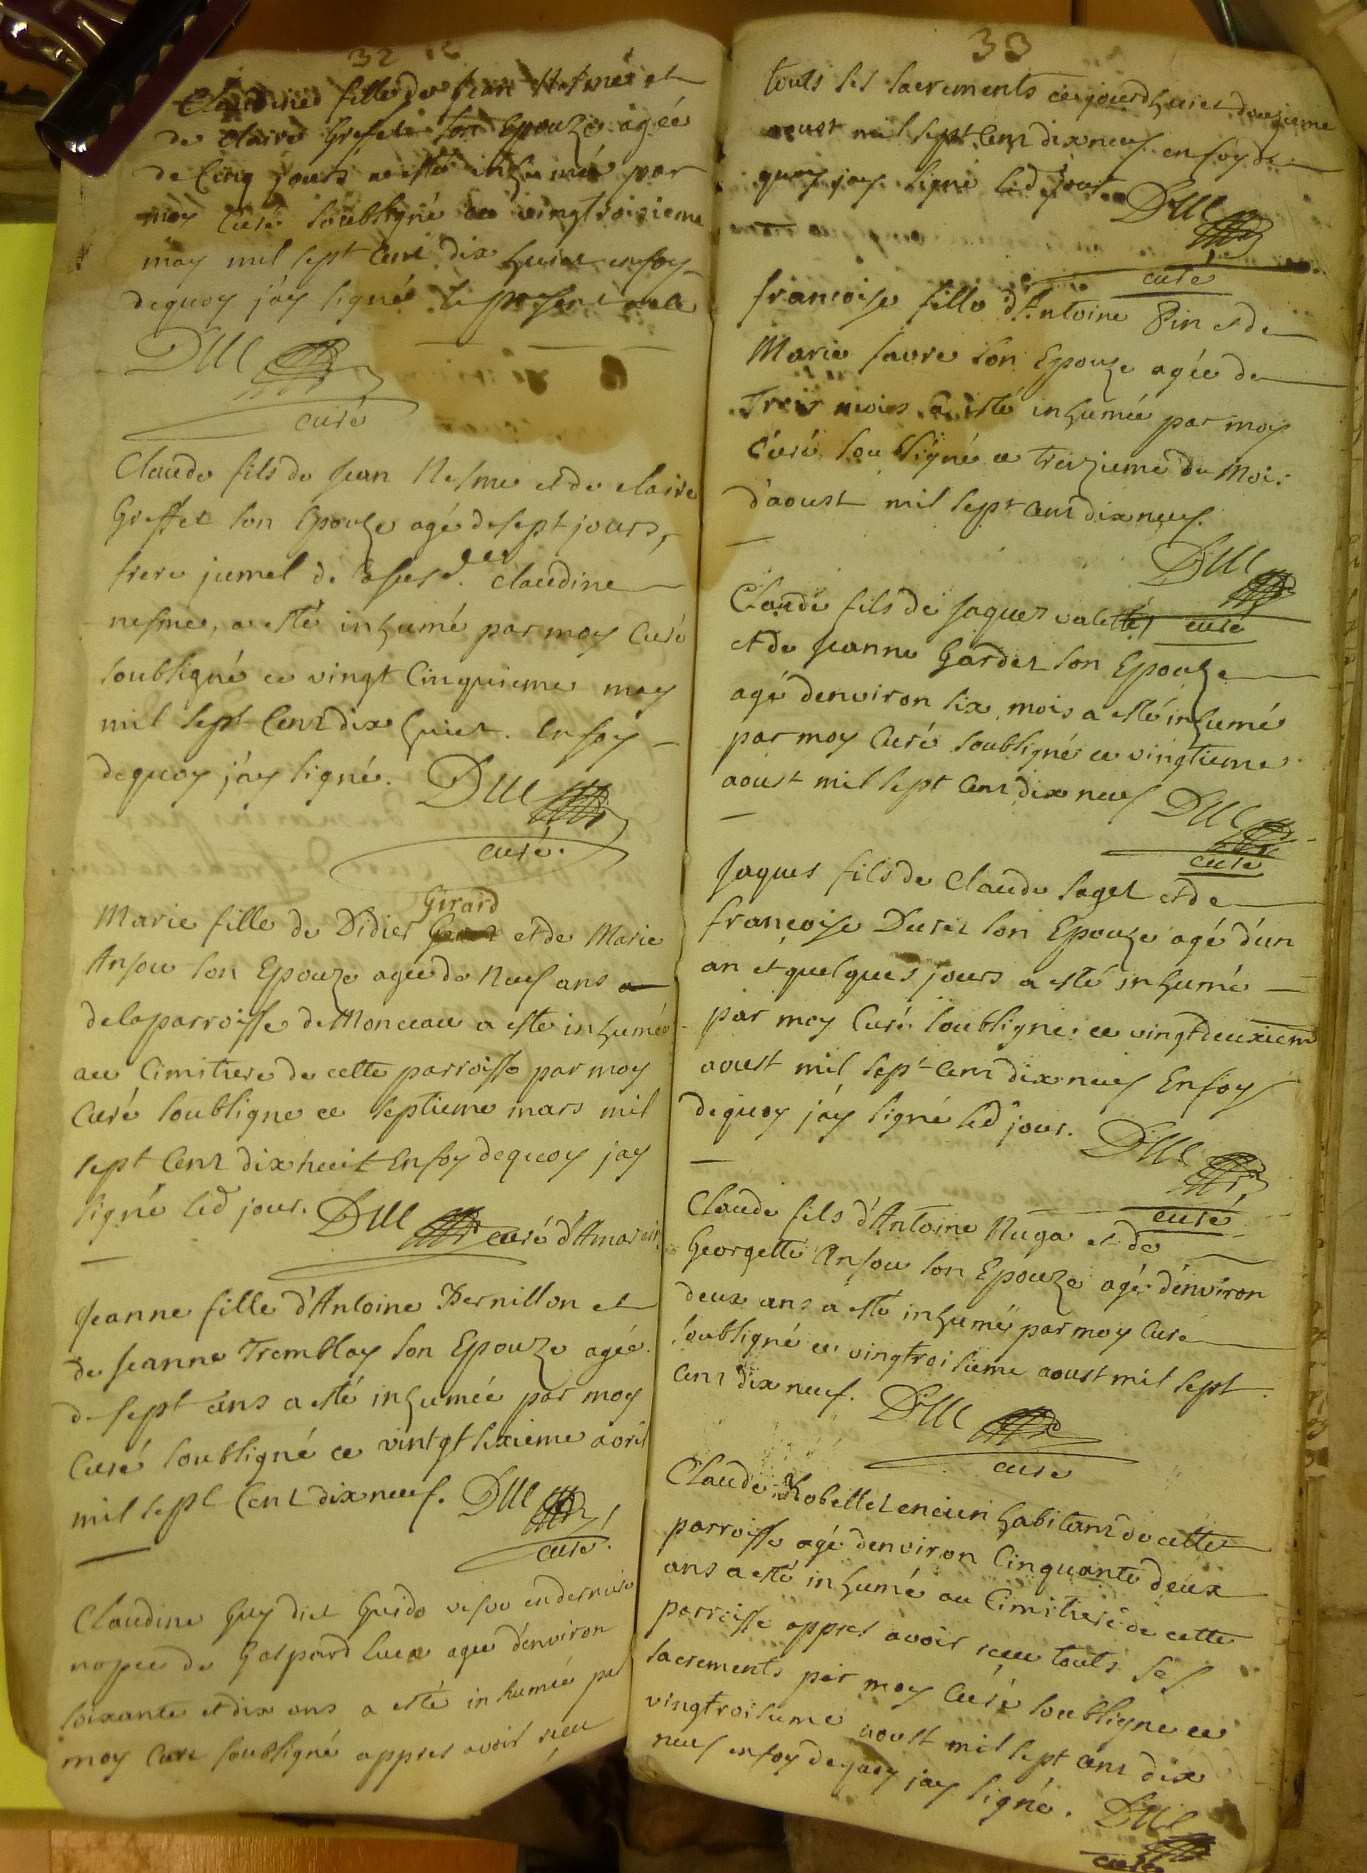 32
Claudine fille de Jean Nesme et
de Claire Greffet son Epouze agée
de Cinq jours a esté inhumée par
moy Curé soubsigné ce vingtroisieme
may mil sept Cent dix huict en foy
dequoy j'ay signé le present acte
Dul
curé
Claude fils de Jean Nesme et de Claire
Greffet son Epouze agé de sept jours,
frere jumel de laditte Claudine
nesme, a esté inhumé par moy Curé
soubsigné ce vingt Cinquieme may
mil sept Cent dix huict. En foy
dequoy j'ay signé. Dul
curé.
Girard
Marie fille de Didier et de Marie
Ansou son Epouze agée de Neuf ans
de la parroisse de Monceau a esté inhumée
au Cimitiere de cette parroisse par moy
Curé soubsigne ce septieme mars mil
sept Cent dix huit En foy dequoy jay
signé led jour. Dul curé d'Amareins
Jeanne fille d'Antoine Dernillon et
de Jeanne Tremblay son Epouze agée
de sept ans a esté inhumée par moy
Curé soubsigné ce vintgt sixieme avril
mil sept Cent dix neuf. Dul
curé.
Claudine Guy dict Guido vefve en derniere
nopce de Gaspard Luex agée d'environ
soixante et dix ans a esté inhumée par
moy Curé soubsigné appres avoir receu
33
touts ses sacrements cejourdhuict douzieme
aoust mil sept Cent dix neuf en foy de
quoy jay signé led jour. Dul
curé
francoise fille d'Antoine Pin et de
Marie favre son Epouze agée de
Trois mois a esté inhumée par moy
Curé soubsigné ce treizieme du Mois
d'aoust mil sept Cent dix neuf.
Dul
curé
Claude fils de Jaques valette
et de Jeanne Gardet son Epouze
agé denviron six mois a esté inhumé
par moy Curé soubsigné ce vingtieme
aoust mil sept Cent dix neuf Dul
curé
Jaques fils de Claude Saget et de
françoise Duret son Epouze agé d'un
an et quelques jours a esté inhumé
par moy Curé soubsigné ce vingtdeuxieme
aoust mil sept Cent dix neuf En foy
dequoy j'ay signé led jour. Dul
curé
Claude fils d'Antoine Nuga et de
Georgette Ansou son Epouze agé d'environ
deux ans a esté inhumé par moy Curé
soubsigné ce vingtroisieme aoust mil sept
Cent dix neuf. Dul
curé
Claude Robellet encien habitant de cette
parroisse agé denviron Cinquante deux
ans a esté inhumé au Cimitiere de cette
parroisse appres avoir receu touts ses
sacrements par moy Curé soubsigne ce
vingtroisieme aoust mil sept Cent dix
neuf en foy dequoy jay signé. Dul
curé